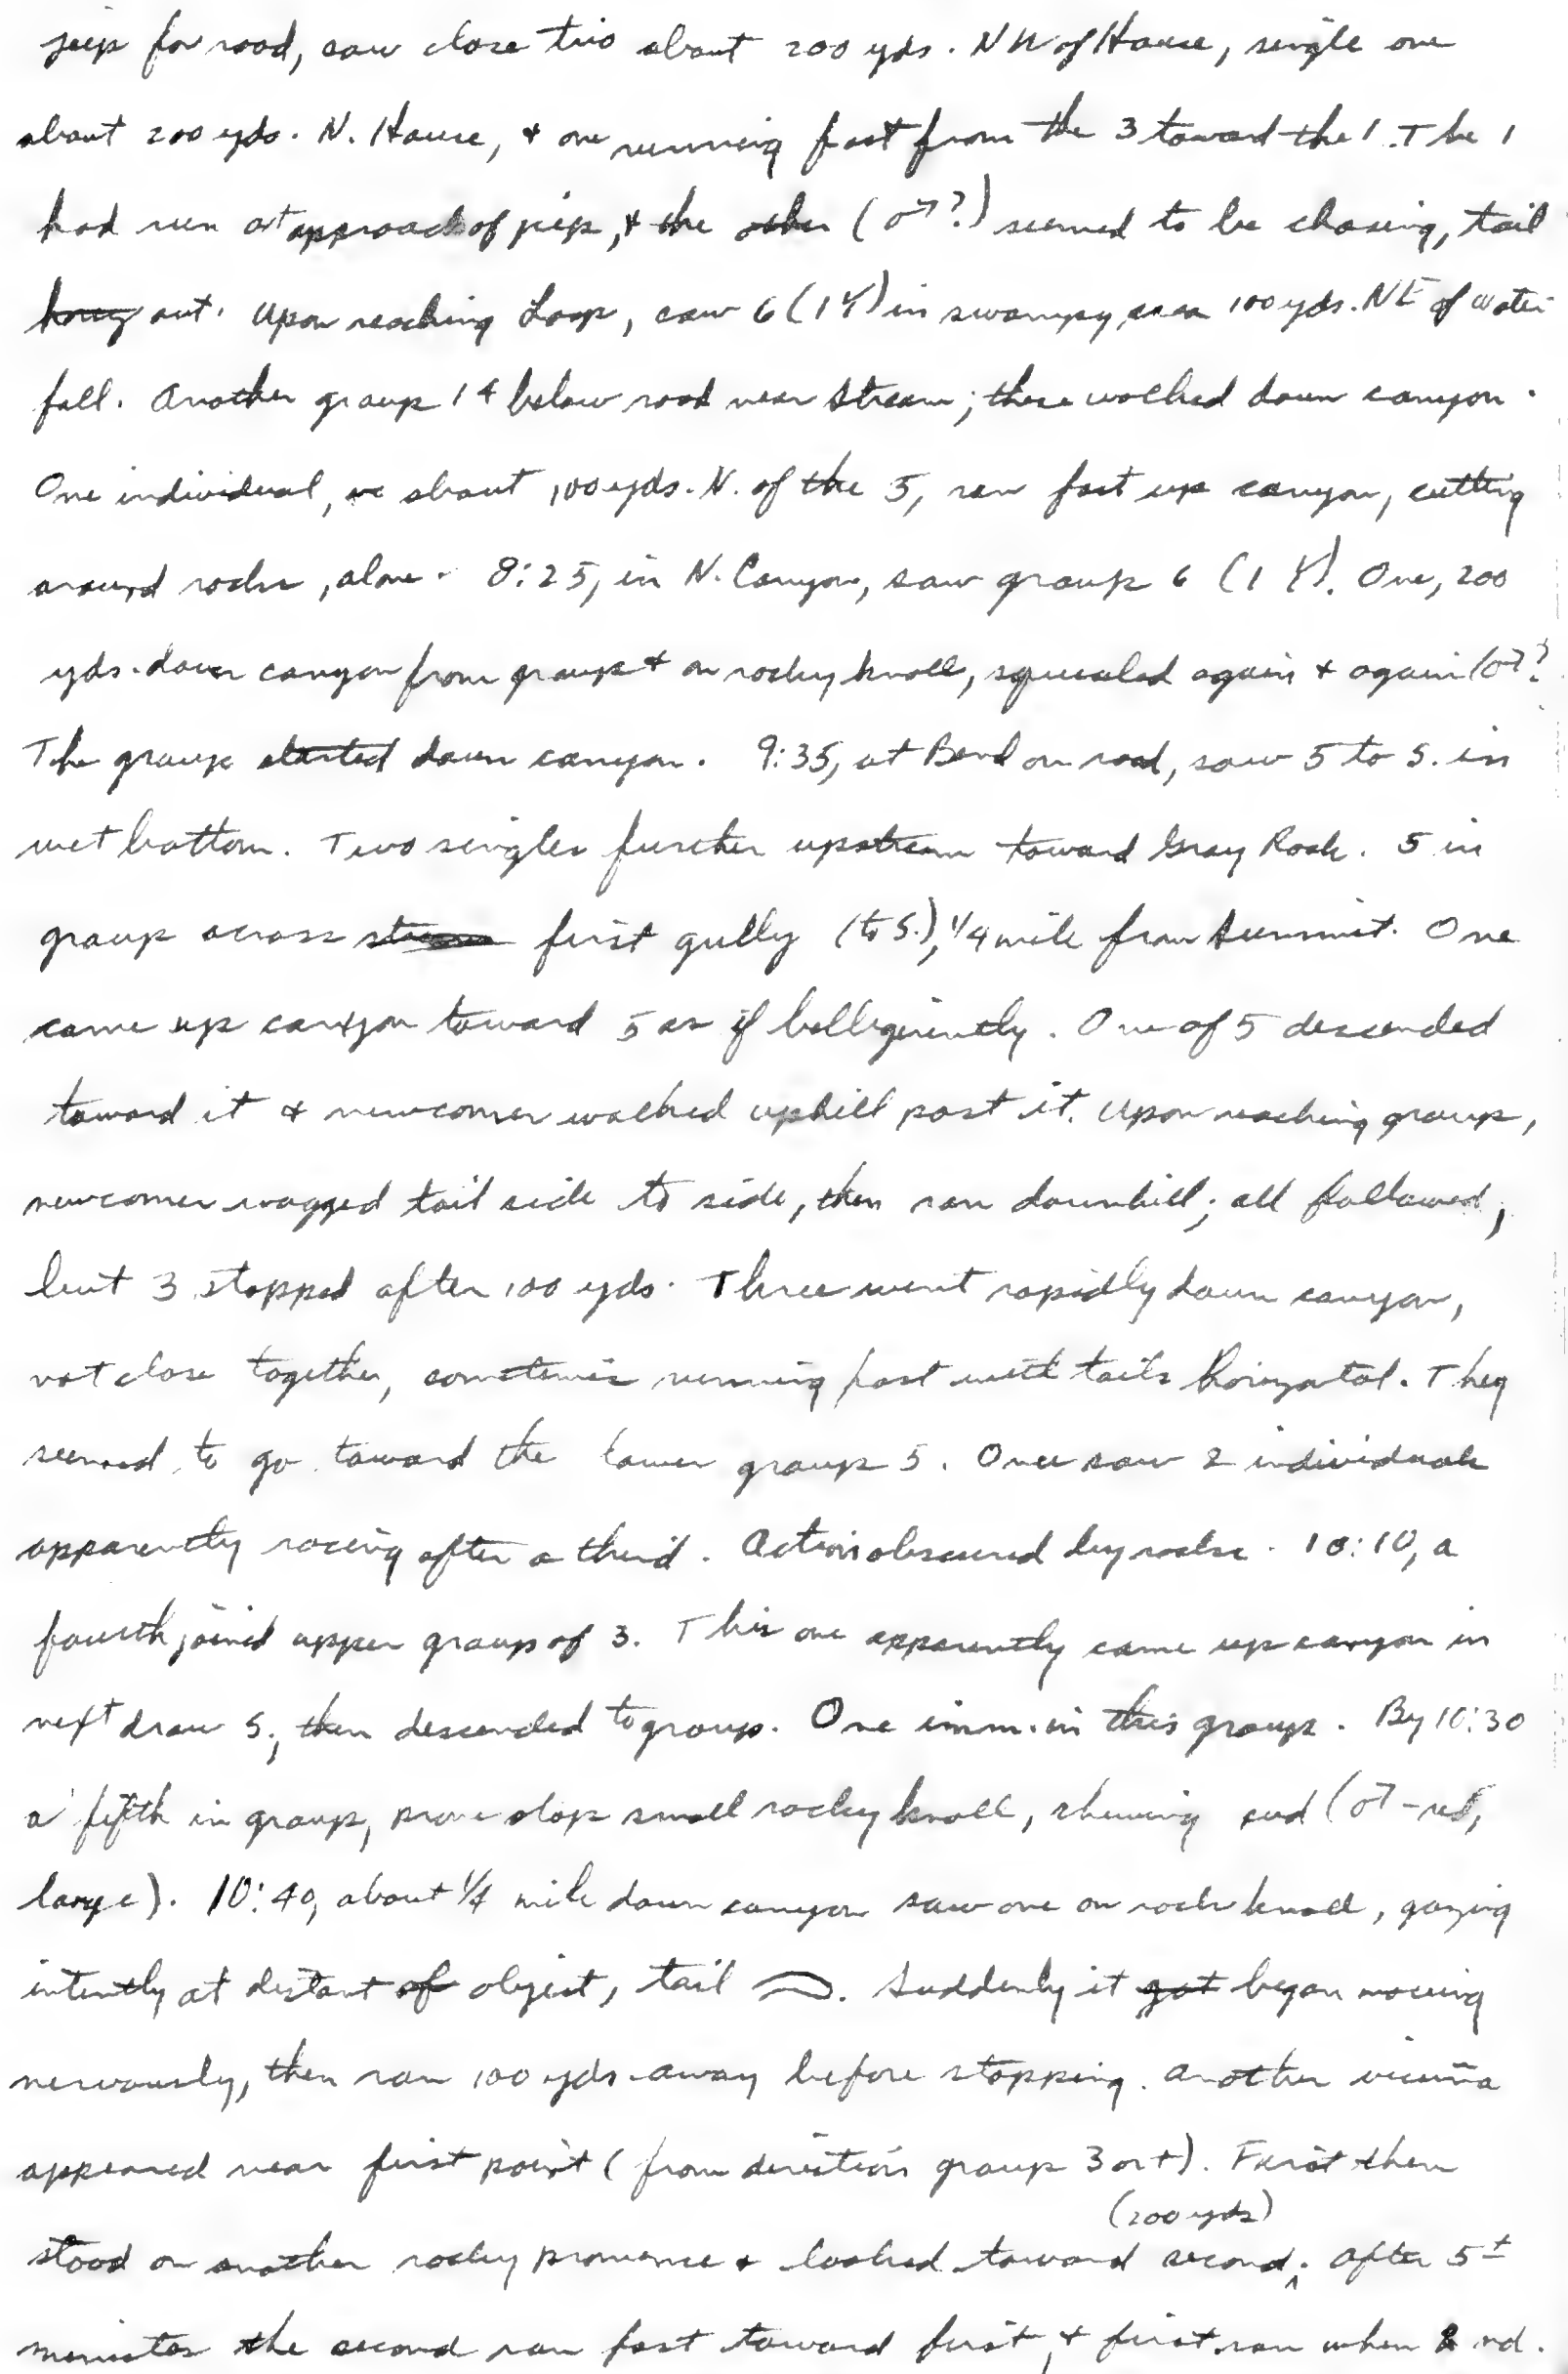 jeep for road, saw close trio about 200 yds. NW of House, single one
about 200 yds. N. House, & one running fast from the 3 toward the 1. The 1
had run at approach of jeep, & the other (♂?) seemed to be chasing, tail
out. Upon reaching Loop, saw 6 (1Y) in swampy area 100 yds. NE of water
fall. Another group 14 below road near stream; these walked down canyon.
One individual, about 100 yds. N. of the 5, ran fast up canyon, cutting
around rocks, alone. 8:25, in N. Canyon, saw group 6 (1Y). One, 200
yds. down canyon from group & on rocky knoll, squealed again & again (♂?
The group started down canyon. 9:35, at Bend on road, saw 5 to S. in
wet bottom. Two singles further upstream toward Gray Rock. 5 in
group across first gully (to S.), 1/4 mile from summit. One
came up canyon toward 5 as if belligerently. One of 5 descended
toward it & newcomer walked uphill past it. Upon reaching group,
newcomer wagged tail side to side, then ran downhill; all followed,
but 3 stopped after 100 yds. Three went rapidly down canyon,
not close together, sometimes running fast with tails horizontal. They
seemed to go toward the lower group 5. Once saw 2 individuals
apparently racing after a third. Action obscured by rocks. 10:10, a
fourth joined upper group of 3. This one apparently came up canyon in
next draw S., then descended to group. One imm. in this group. By 10:30
a fifth in group, prone atop small rocky knoll, chewing cud (♂ - red,
large). 10:40, about 1/4 mile down canyon saw one on rock knoll, gazing
intently at distant of object, tail ⌒. Suddenly it got began moving
nervously, then ran 100 yds. away before stopping. Another vicuña
appeared near first point (from direction group 3 or +). First then
(200 yds)
stood on another rocky prominence & looked toward second. After 5±
minutes the second ran fast toward first, & first ran when 2nd.